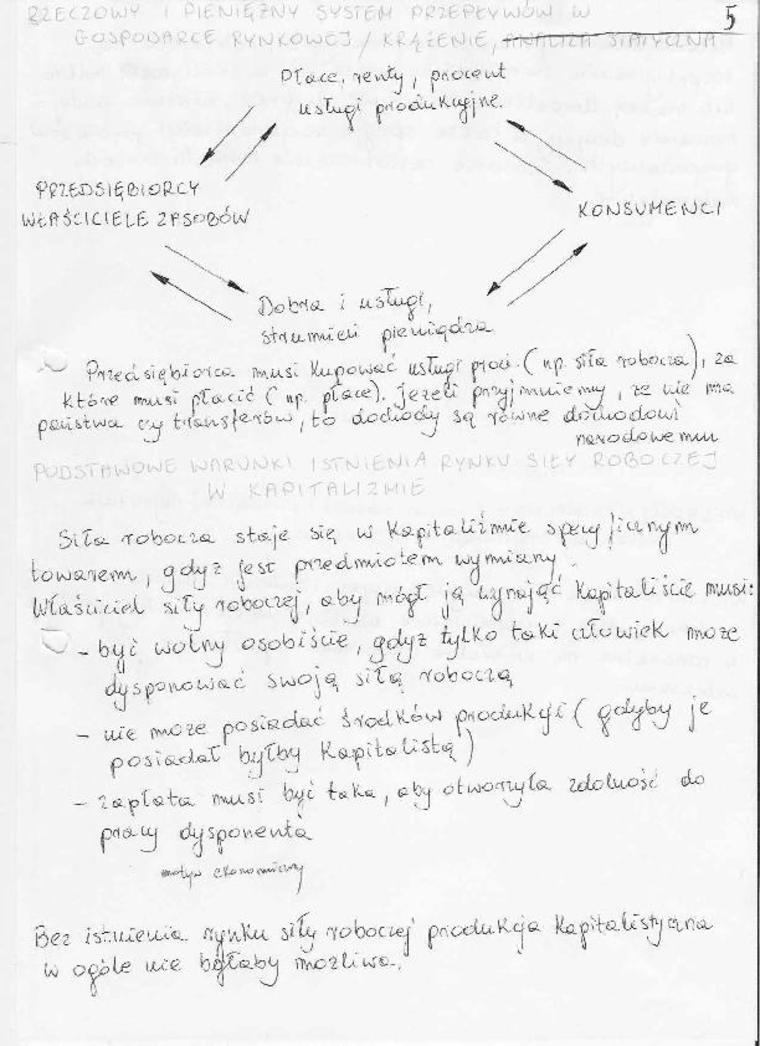 5
RZECZOWY I PIENIĘŻNY SYSTEM PRZEPŁYWÓW W
GOSPODARCE RYNKOWEJ / KRĄŻENIE, ANALIZA STATYCZNA
Płace, renty, procent
usługi produkcyjne.
PRZEDSIĘBIORCY
WŁAŚCICIELE ZASOBÓW
KONSUMENCI
Dobra i usługi,
strumień pieniądza
Przedsiębiorca musi kupować usługi prod. (np. siła robocza), za
które musi płacić (np. płace). Jeżeli przyjmiemy, że nie ma
państwa czy transferów, to dochody są równe dochodowi
narodowemu
PODSTAWOWE WARUNKI ISTNIENIA RYNKU SIŁY ROBOCZEJ
W KAPITALIZMIE
Siła robocza staje się w kapitaliźmie specyficznym
towarem, gdyż jest przedmiotem wymiany.
Właściciel siły roboczej, aby mógł ją wynająć kapitaliście musi:
- być wolny osobiście, gdyż tylko taki człowiek może
dysponować swoją siłą roboczą
- nie może posiadać środków produkcji (gdyby je
posiadał byłby kapitalistą)
- zapłata musi być taka, aby otworzyła zdolność do
pracy dysponenta
motyw ekonomiczny
Bez istnienia rynku siły roboczej produkcja kapitalistyczna
w ogóle nie byłaby możliwa.